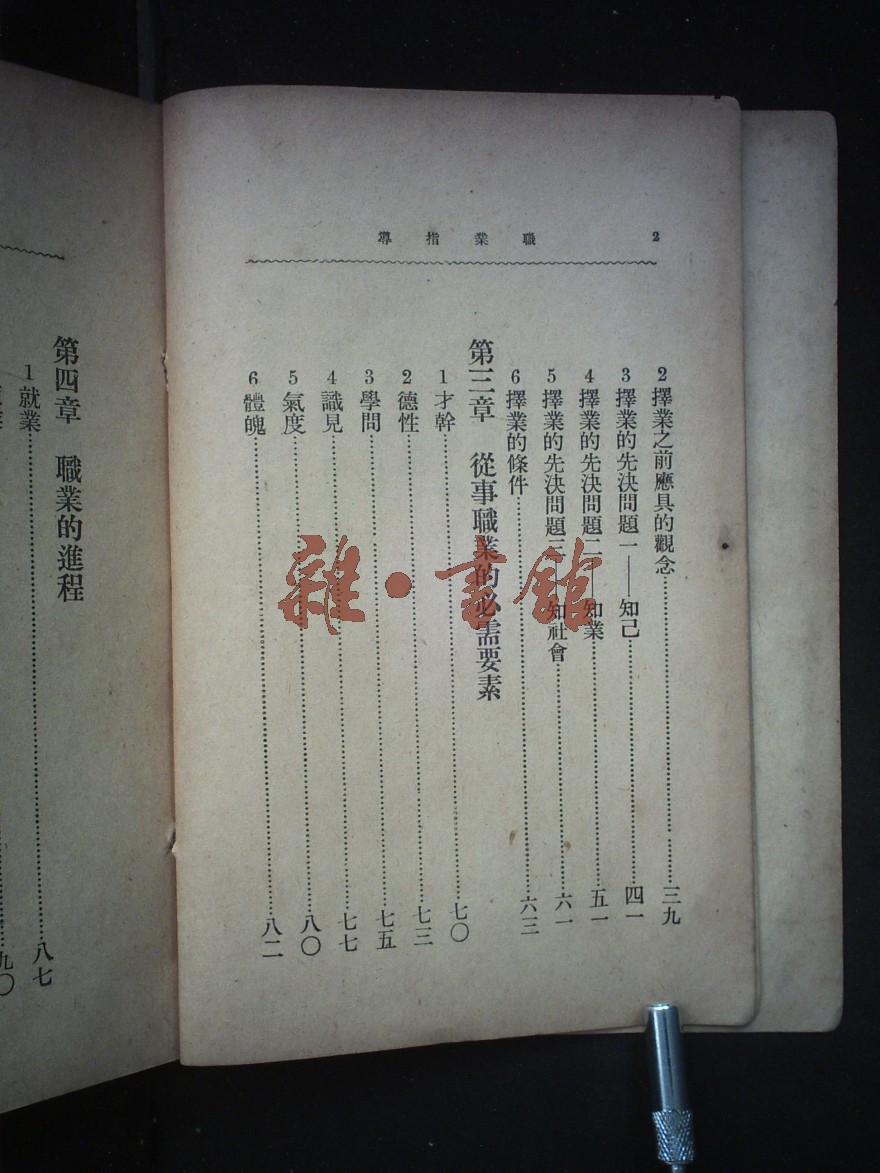 職業指導 2
2 擇業之前應具的觀念……三九
3 擇業的先決問題一——知己……四一
4 擇業的先決問題二——知業……五一
5 擇業的先決問題三——知社會……六一
6 擇業的條件……六三
第三章 從事職業的必需要素
1 才幹……七〇
2 德性……七三
3 學問……七五
4 識見……七七
5 氣度……八〇
6 體魄……八二
第四章 職業的進程
1 就業……八七
九〇
雜·書館